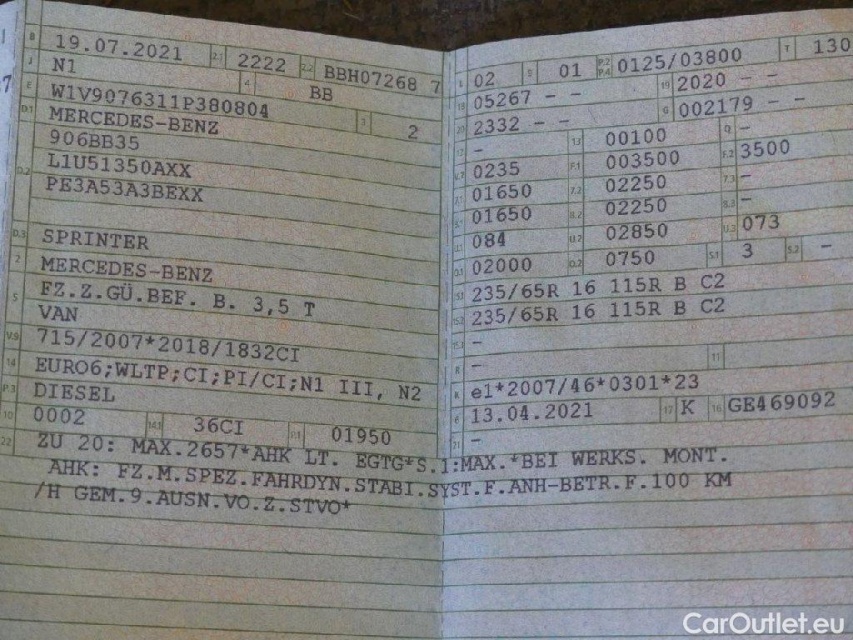 B 19.07.2021 2.1 2222 2.2 BBH07268 7
J N1 4 BB
E W1V9076311P380804
D.1 MERCEDES-BENZ 3 2
906BB35
D.2 L1U51350AXX
PE3A53A3BEXX
D.3 SPRINTER
2 MERCEDES-BENZ
5 FZ.Z.GÜ.BEF. B. 3,5 T
VAN
V.9 715/2007*2018/1832CI
14 EURO6;WLTP;CI;PI/CI;N1 III, N2
P.3 DIESEL
10 0002 14.1 36CI P.1 01950
22 ZU 20: MAX.2657*AHK LT. EGTG*S.1:MAX.*BEI WERKS. MONT.
AHK: FZ.M.SPEZ.FAHRDYN.STABI.SYST.F.ANH-BETR.F.100 KM
/H GEM.9.AUSN.VO.Z.STVO*
L 02 9 01 P.2 P.4 0125/03800 T 130
18 05267 – – 19 2020 – –
20 2332 – – G 002179 – –
12 – 13 00100 Q –
V.7 0235 F.1 003500 F.2 3500
7.1 01650 7.2 02250 7.3 –
8.1 01650 8.2 02250 8.3 –
U.1 084 U.2 02850 U.3 073
O.1 02000 O.2 0750 S.1 3 S.2 –
15.1 235/65R 16 115R B C2
15.2 235/65R 16 115R B C2
15.3 –
R – 11
K e1*2007/46*0301*23
6 13.04.2021 17 K 16 GE469092
21 –
CarOutlet.eu